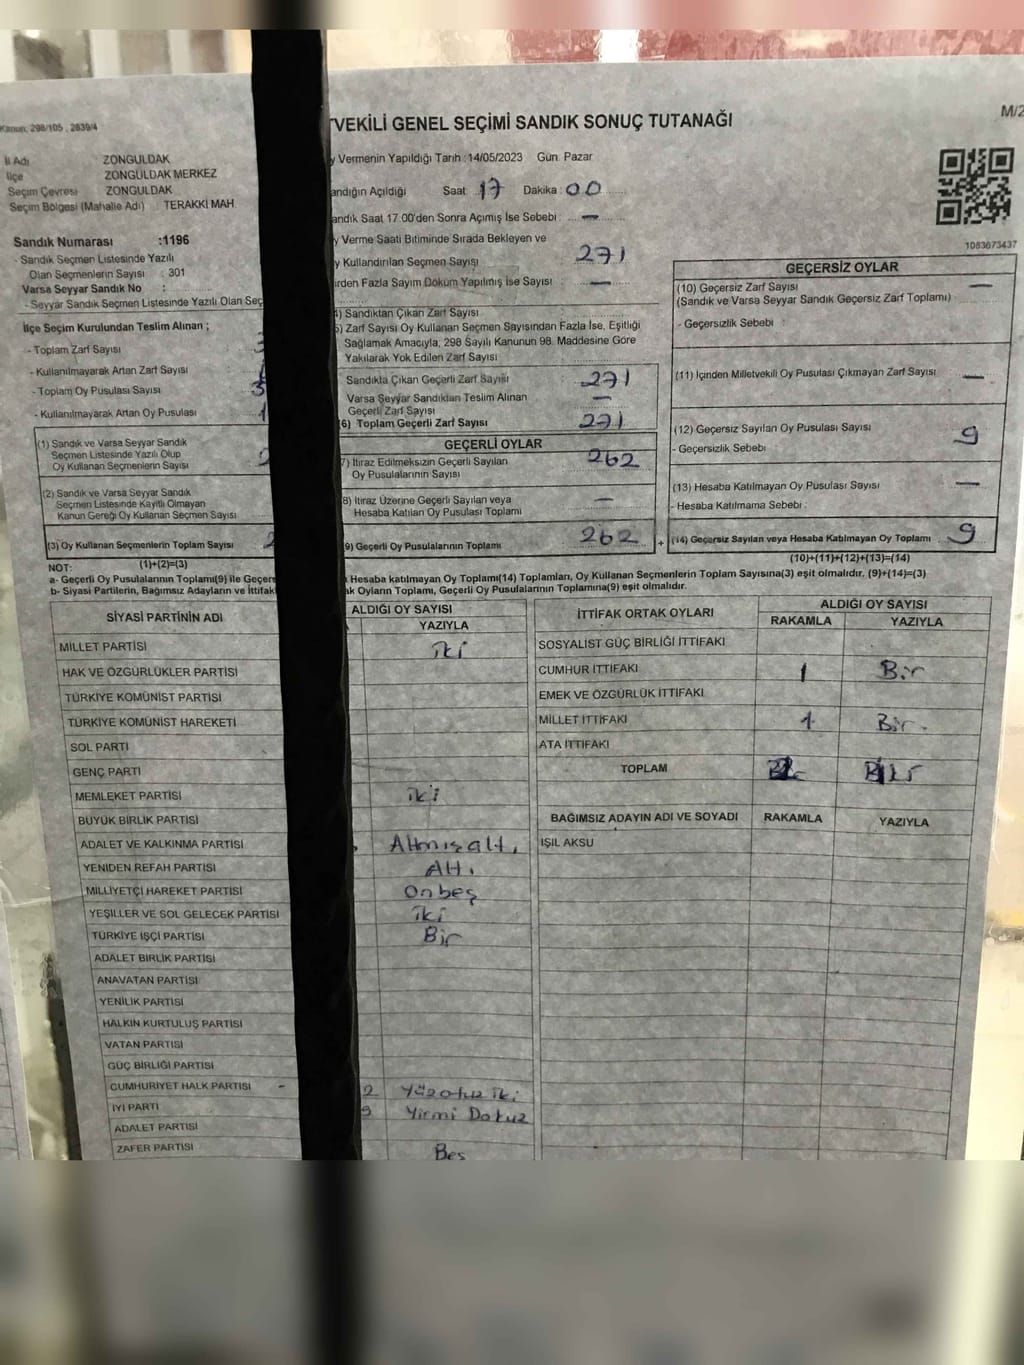 Kanun: 298/105, 2839/4
M/2
VEKİLİ GENEL SEÇİMİ SANDIK SONUÇ TUTANAĞI
İl Adı ZONGULDAK
İlçe ZONGULDAK MERKEZ
Seçim Çevresi ZONGULDAK
Seçim Bölgesi (Mahalle Adı) : TERAKKİ MAH.
Sandık Numarası :1196
- Sandık Seçmen Listesinde Yazılı
Olan Seçmenlerin Sayısı : 301
Varsa Seyyar Sandık No :
- Seyyar Sandık Seçmen Listesinde Yazılı Olan Seç
İlçe Seçim Kurulundan Teslim Alınan ;
- Toplam Zarf Sayısı
- Kullanılmayarak Artan Zarf Sayısı
- Toplam Oy Pusulası Sayısı 3
- Kullanılmayarak Artan Oy Pusulası 1
(1) Sandık ve Varsa Seyyar Sandık
Seçmen Listesinde Yazılı Olup
Oy Kullanan Seçmenlerin Sayısı 2
(2) Sandık ve Varsa Seyyar Sandık
Seçmen Listesinde Kayıtlı Olmayan
Kanun Gereği Oy Kullanan Seçmen Sayısı
(3) Oy Kullanan Seçmenlerin Toplam Sayısı 2
(1)+(2)=(3)
y Vermenin Yapıldığı Tarih :14/05/2023 Gün: Pazar
andığın Açıldığı Saat: 17 Dakika: 00
andık Saat 17:00'den Sonra Açımış İse Sebebi : —
y Verme Saati Bitiminde Sırada Bekleyen ve
y Kullandırılan Seçmen Sayısı 271
irden Fazla Sayım Döküm Yapılmış İse Sayısı : —
4) Sandıktan Çıkan Zarf Sayısı
5) Zarf Sayısı Oy Kullanan Seçmen Sayısından Fazla İse, Eşitliği
Sağlamak Amacıyla, 298 Sayılı Kanunun 98. Maddesine Göre
Yakılarak Yok Edilen Zarf Sayısı
Sandıkta Çıkan Geçerli Zarf Sayısı 271
Varsa Seyyar Sandıktan Teslim Alınan
Geçerli Zarf Sayısı —
(6) Toplam Geçerli Zarf Sayısı 271
GEÇERLİ OYLAR
7) İtiraz Edilmeksizin Geçerli Sayılan
Oy Pusulalarının Sayısı 262
8) İtiraz Üzerine Geçerli Sayılan veya
Hesaba Katılan Oy Pusulası Toplamı —
9) Geçerli Oy Pusulalarının Toplamı 262 +
1083673437
GEÇERSİZ OYLAR
(10) Geçersiz Zarf Sayısı —
(Sandık ve Varsa Seyyar Sandık Geçersiz Zarf Toplamı)
- Geçersizlik Sebebi :
(11) İçinden Milletvekili Oy Pusulası Çıkmayan Zarf Sayısı —
(12) Geçersiz Sayılan Oy Pusulası Sayısı 9
- Geçersizlik Sebebi
(13) Hesaba Katılmayan Oy Pusulası Sayısı —
- Hesaba Katılmama Sebebi :
(14) Geçersiz Sayılan veya Hesaba Katılmayan Oy Toplamı 9
(10)+(11)+(12)+(13)=(14)
NOT:
a- Geçerli Oy Pusulalarının Toplamı(9) ile Geçers Hesaba Katılmayan Oy Toplamı(14) Toplamları, Oy Kullanan Seçmenlerin Toplam Sayısına(3) eşit olmalıdır. (9)+(14)=(3)
b- Siyasi Partilerin, Bağımsız Adayların ve İttifak ak Oyların Toplamı, Geçerli Oy Pusulalarının Toplamına(9) eşit olmalıdır.
SİYASİ PARTİNİN ADI ALDIĞI OY SAYISI
YAZIYLA
MİLLET PARTİSİ iki
HAK VE ÖZGÜRLÜKLER PARTİSİ
TÜRKİYE KOMÜNİST PARTİSİ
TÜRKİYE KOMÜNİST HAREKETİ
SOL PARTİ
GENÇ PARTİ
MEMLEKET PARTİSİ iki
BÜYÜK BİRLİK PARTİSİ
ADALET VE KALKINMA PARTİSİ Altmışaltı
YENİDEN REFAH PARTİSİ Altı
MİLLİYETÇİ HAREKET PARTİSİ Onbeş
YEŞİLLER VE SOL GELECEK PARTİSİ iki
TÜRKİYE İŞÇİ PARTİSİ Bir
ADALET BİRLİK PARTİSİ
ANAVATAN PARTİSİ
YENİLİK PARTİSİ
HALKIN KURTULUŞ PARTİSİ
VATAN PARTİSİ
GÜÇ BİRLİĞİ PARTİSİ
CUMHURİYET HALK PARTİSİ 2 Yüzotuz iki
İYİ PARTİ 9 Yirmi Dokuz
ADALET PARTİSİ
ZAFER PARTİSİ Beş
İTTİFAK ORTAK OYLARI ALDIĞI OY SAYISI
RAKAMLA YAZIYLA
SOSYALİST GÜÇ BİRLİĞİ İTTİFAKI
CUMHUR İTTİFAKI 1 Bir
EMEK VE ÖZGÜRLÜK İTTİFAKI
MİLLET İTTİFAKI 1 Bir
ATA İTTİFAKI
TOPLAM
BAĞIMSIZ ADAYIN ADI VE SOYADI RAKAMLA YAZIYLA
IŞIL AKSU